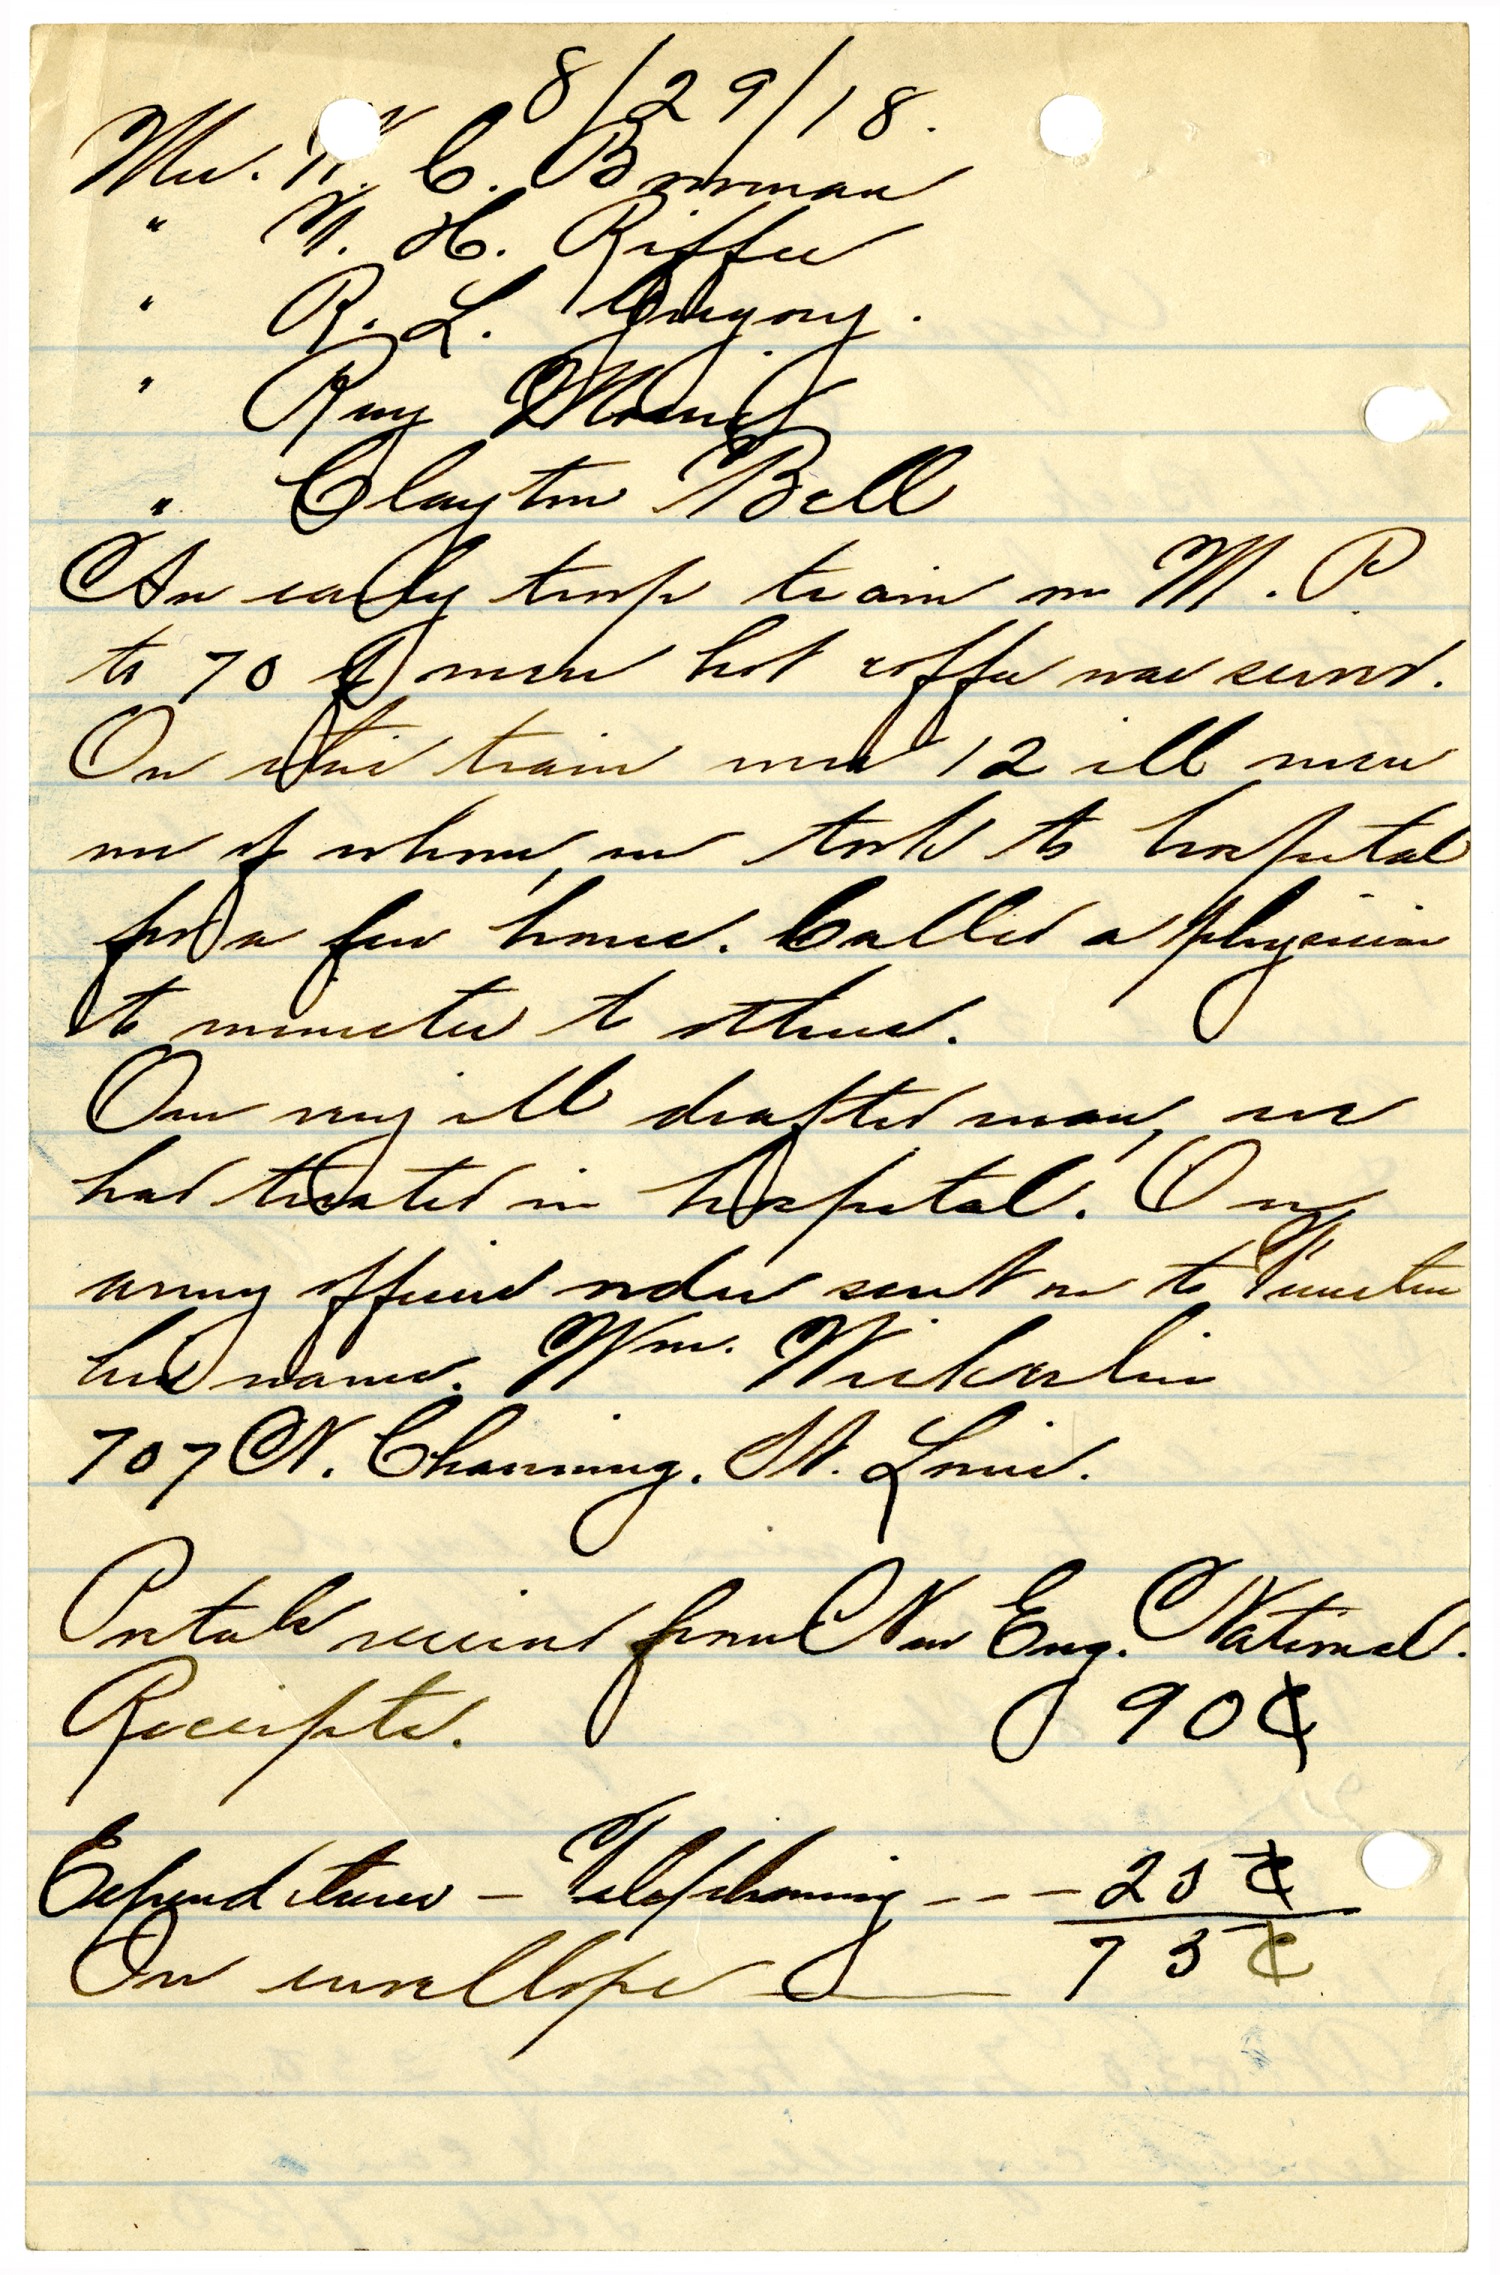 8/29/18.
Mrs. W. C. Bowman
" W. H. Riffee
" R. L. Gregory.
" Ray
" Clayton Bell
An early troop train on M. P.
to 70 of men hot coffee was served.
On this train were 12 ill men
one of whom, we took to hospital
for a few hours. Called a physician
to minister to others.
One very ill drafted man, we
had treated in hospital. On
army officers order sent on to Funston
his name. Wm.
707 N. Channing. St. Louis.
Postals received from New Eng. National.
Receipts. 90¢
Expenditures – Telephoning --- 25¢
On envellope 75¢